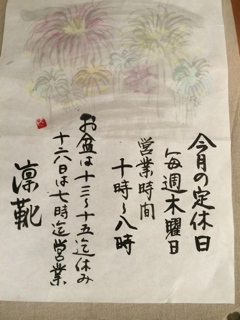 今月の定休日
毎週木曜日
営業時間
十時〜八時
お盆は十三〜十五迄休み
十六日は七時迄営業
凛靴